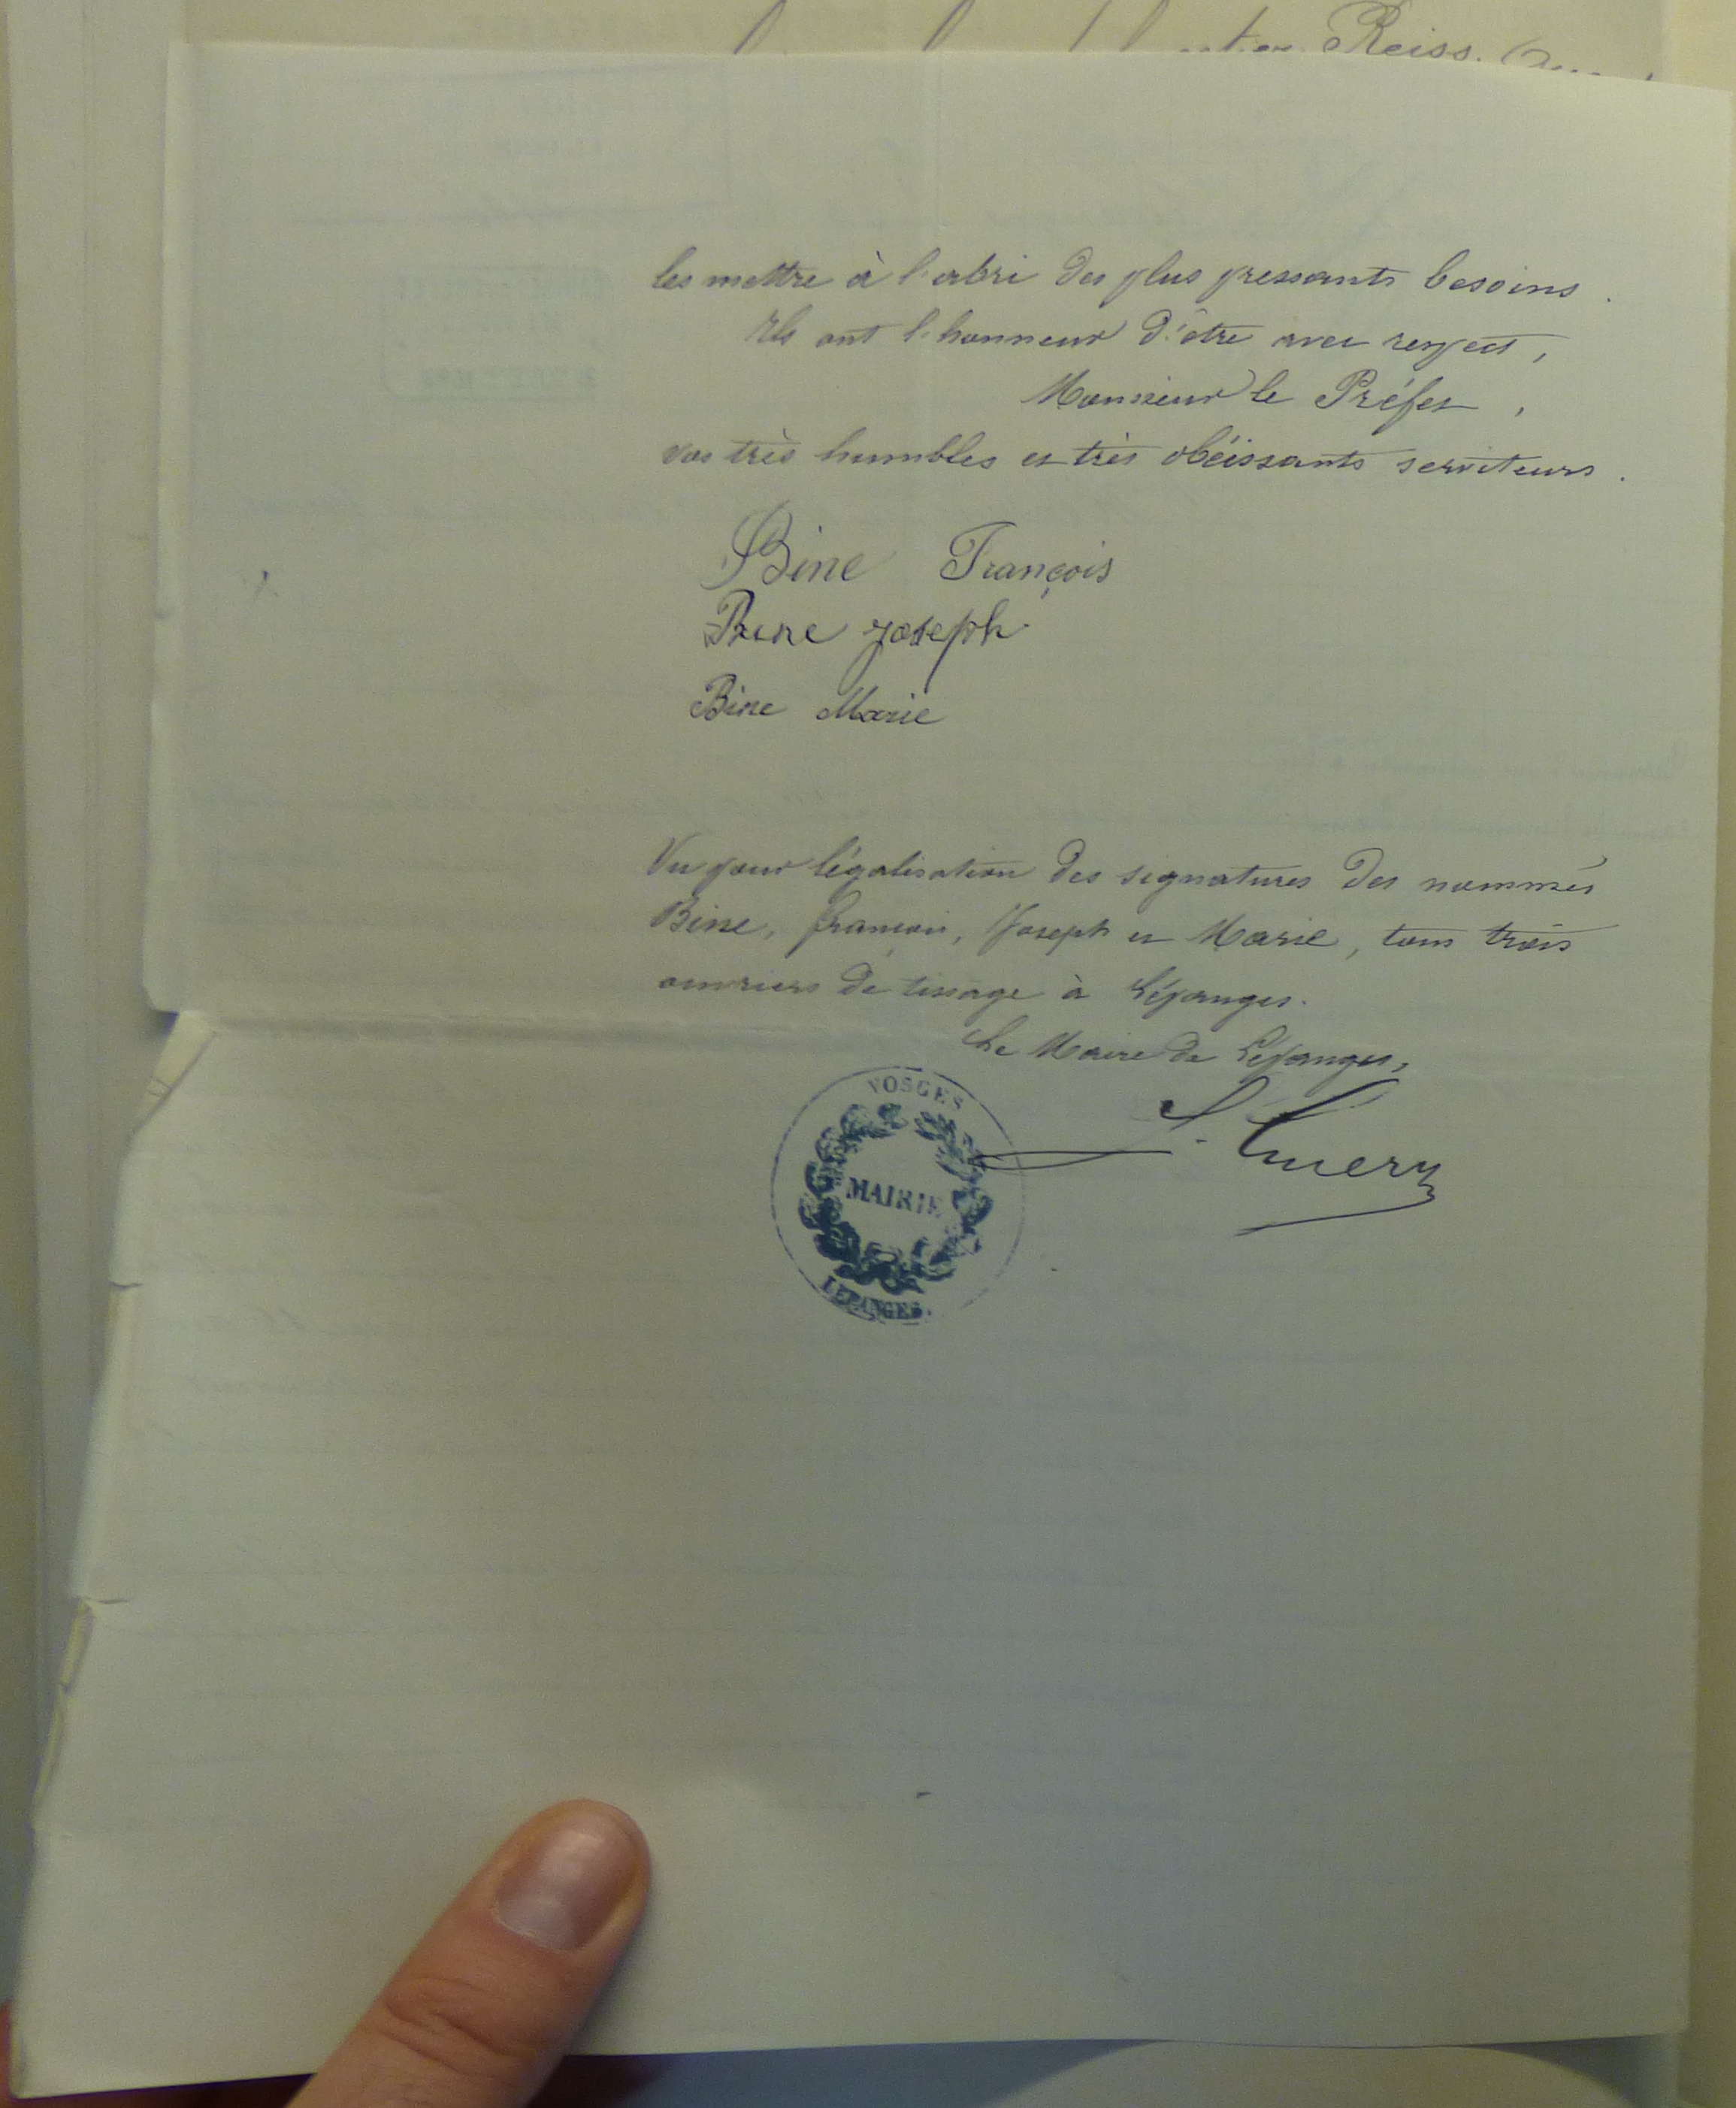 Reiss.
les mettre à l'abri des plus pressants besoins.
Ils ont l'honneur d'être avec respect,
Monsieur le Préfet,
vos très humbles et très obéissants serviteurs.
Bine François
Bine joseph
Bine Marie
Vu pour légalisation des signatures des nommés
Bine, françois, Joseph et Marie, tous trois
ouvriers de tissage à Lépanges.
Le Maire de Lépanges,
VOSGES
MAIRIE
LEPANGES.